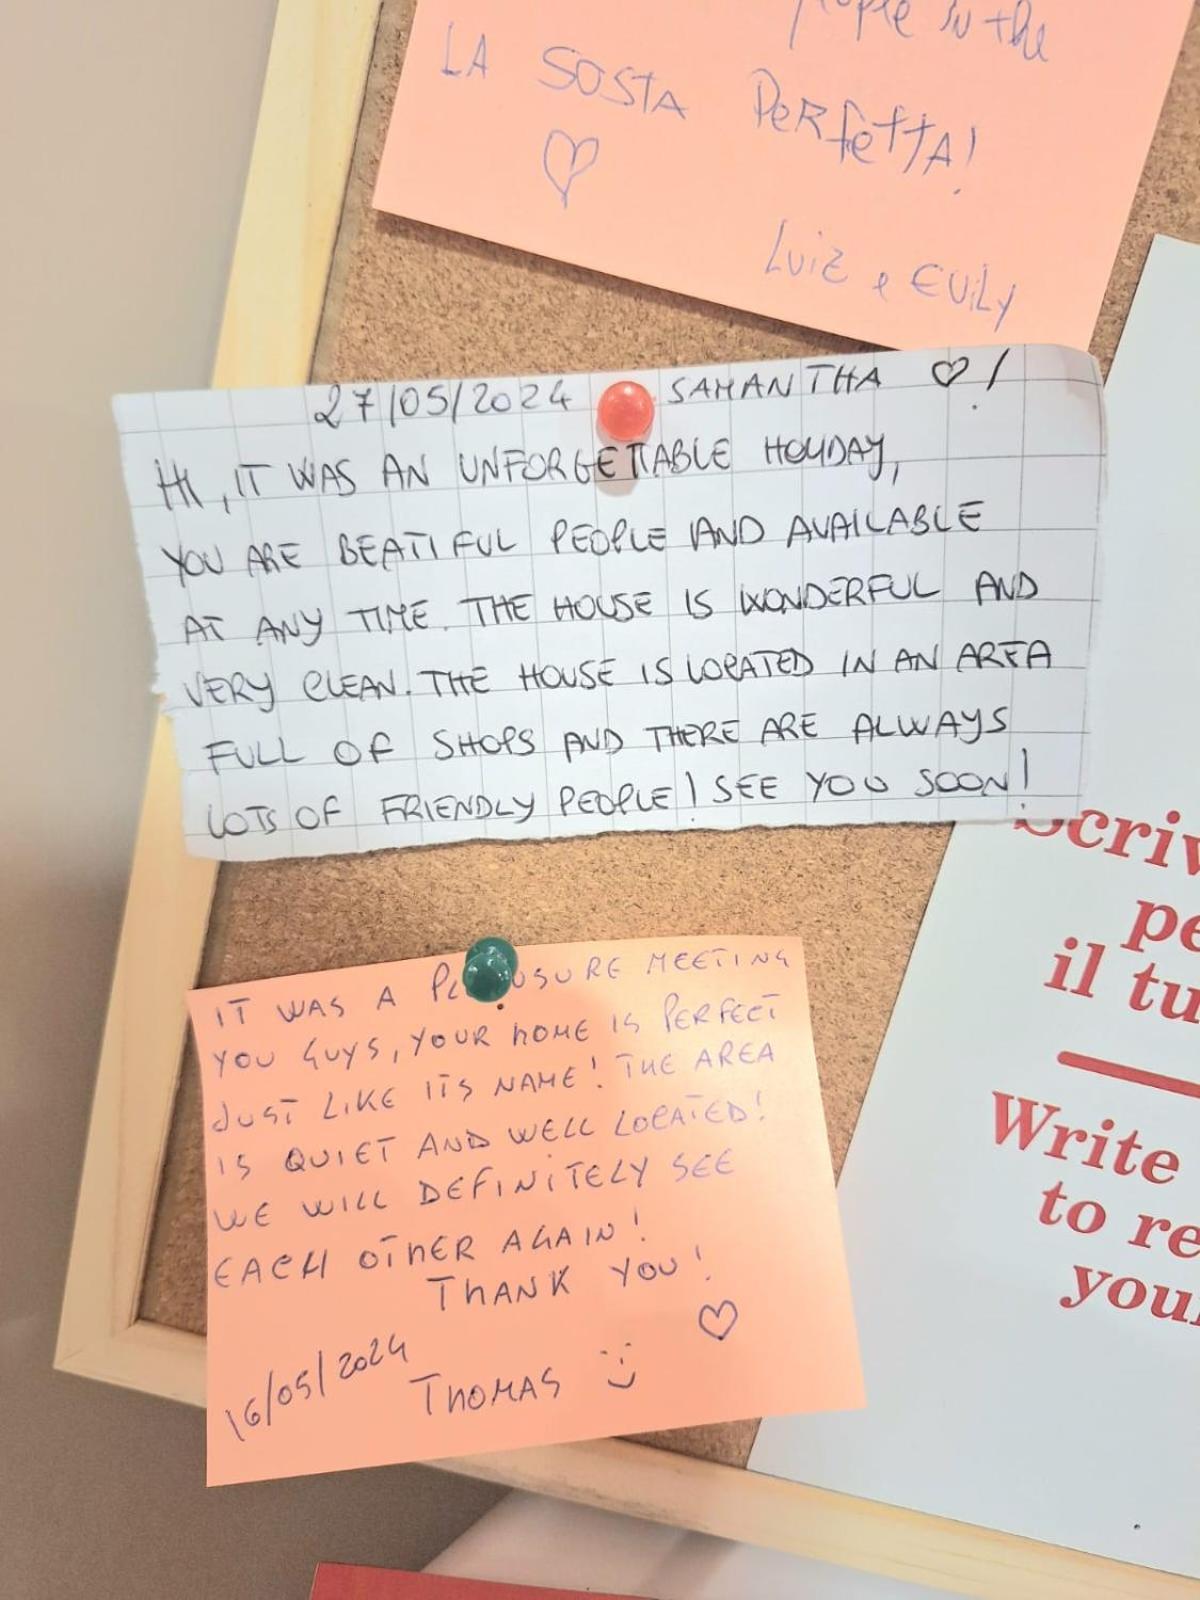 people in the
LA SOSTA PERfETTA!
LUIZ e EVILY
27/05/2024 SAMANTHA ♡!
HI, IT WAS AN UNFORGETTABLE HOLIDAY,
YOU ARE BEATIFUL PEOPLE AND AVAILABLE
AT ANY TIME. THE HOUSE IS WONDERFUL AND
VERY CLEAN. THE HOUSE IS LOCATED IN AN AREA
FULL OF SHOPS AND THERE ARE ALWAYS
LOTS OF FRIENDLY PEOPLE! SEE YOU SOON!
IT WAS A PLEUSURE MEETING
YOU GUYS, YOUR HOME IS PERFECT
JUST LIKE ITS NAME! THE AREA
IS QUIET AND WELL LOCATED!
WE WILL DEFINITELY SEE
EACH OTHER AGAIN!
THANK YOU!
♡
16/05/2024
THOMAS
Scriv
pe
il tu
Write
to re
you